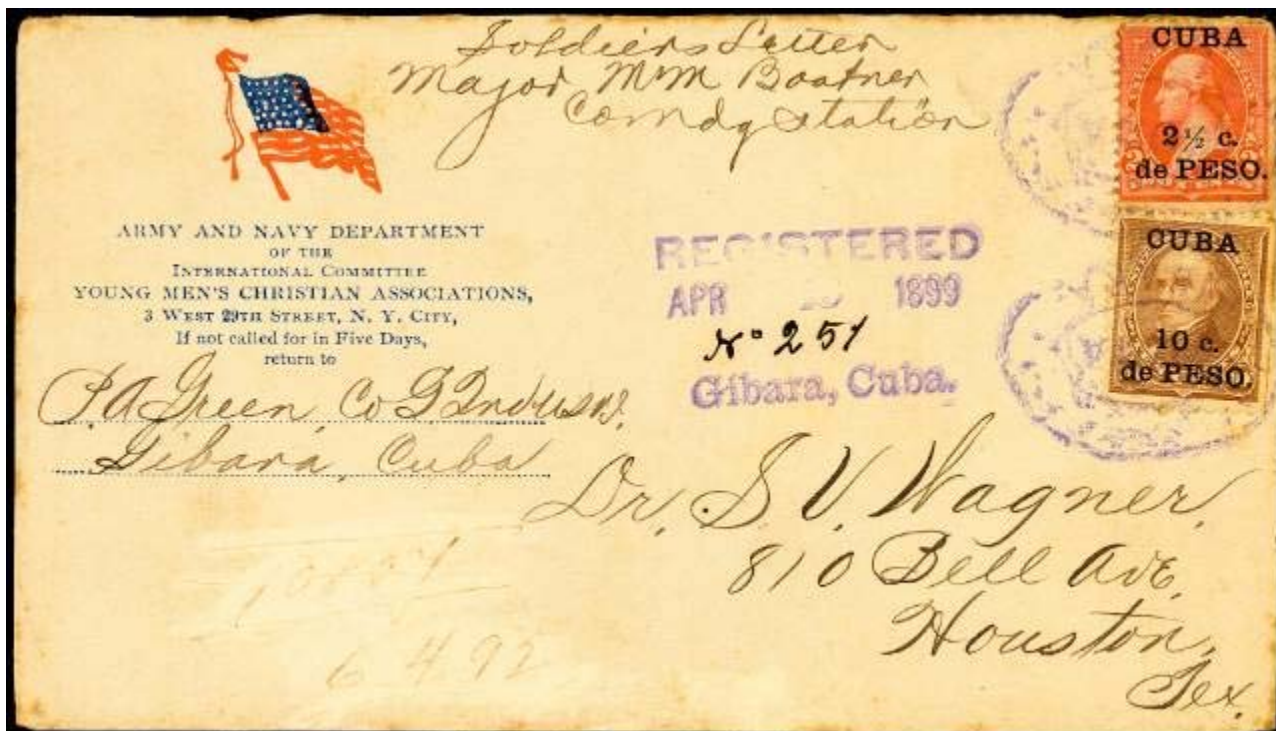 Soldiers Letter
Major M M Boatner
Comdg Station
CUBA
2 ½ c.
de PESO.
CUBA
10 c.
de PESO.
ARMY AND NAVY DEPARTMENT
OF THE
INTERNATIONAL COMMITTEE
YOUNG MEN'S CHRISTIAN ASSOCIATIONS,
3 WEST 29TH STREET, N. Y. CITY,
If not called for in Five Days,
return to
P.A Green, Co G 2nd USV.
Gibara, Cuba
REGISTERED
APR 1899
No 251
Gibara, Cuba.
Dr. S. V. Wagner.
810 Bell Ave.
Houston,
Tex.
6 4 92